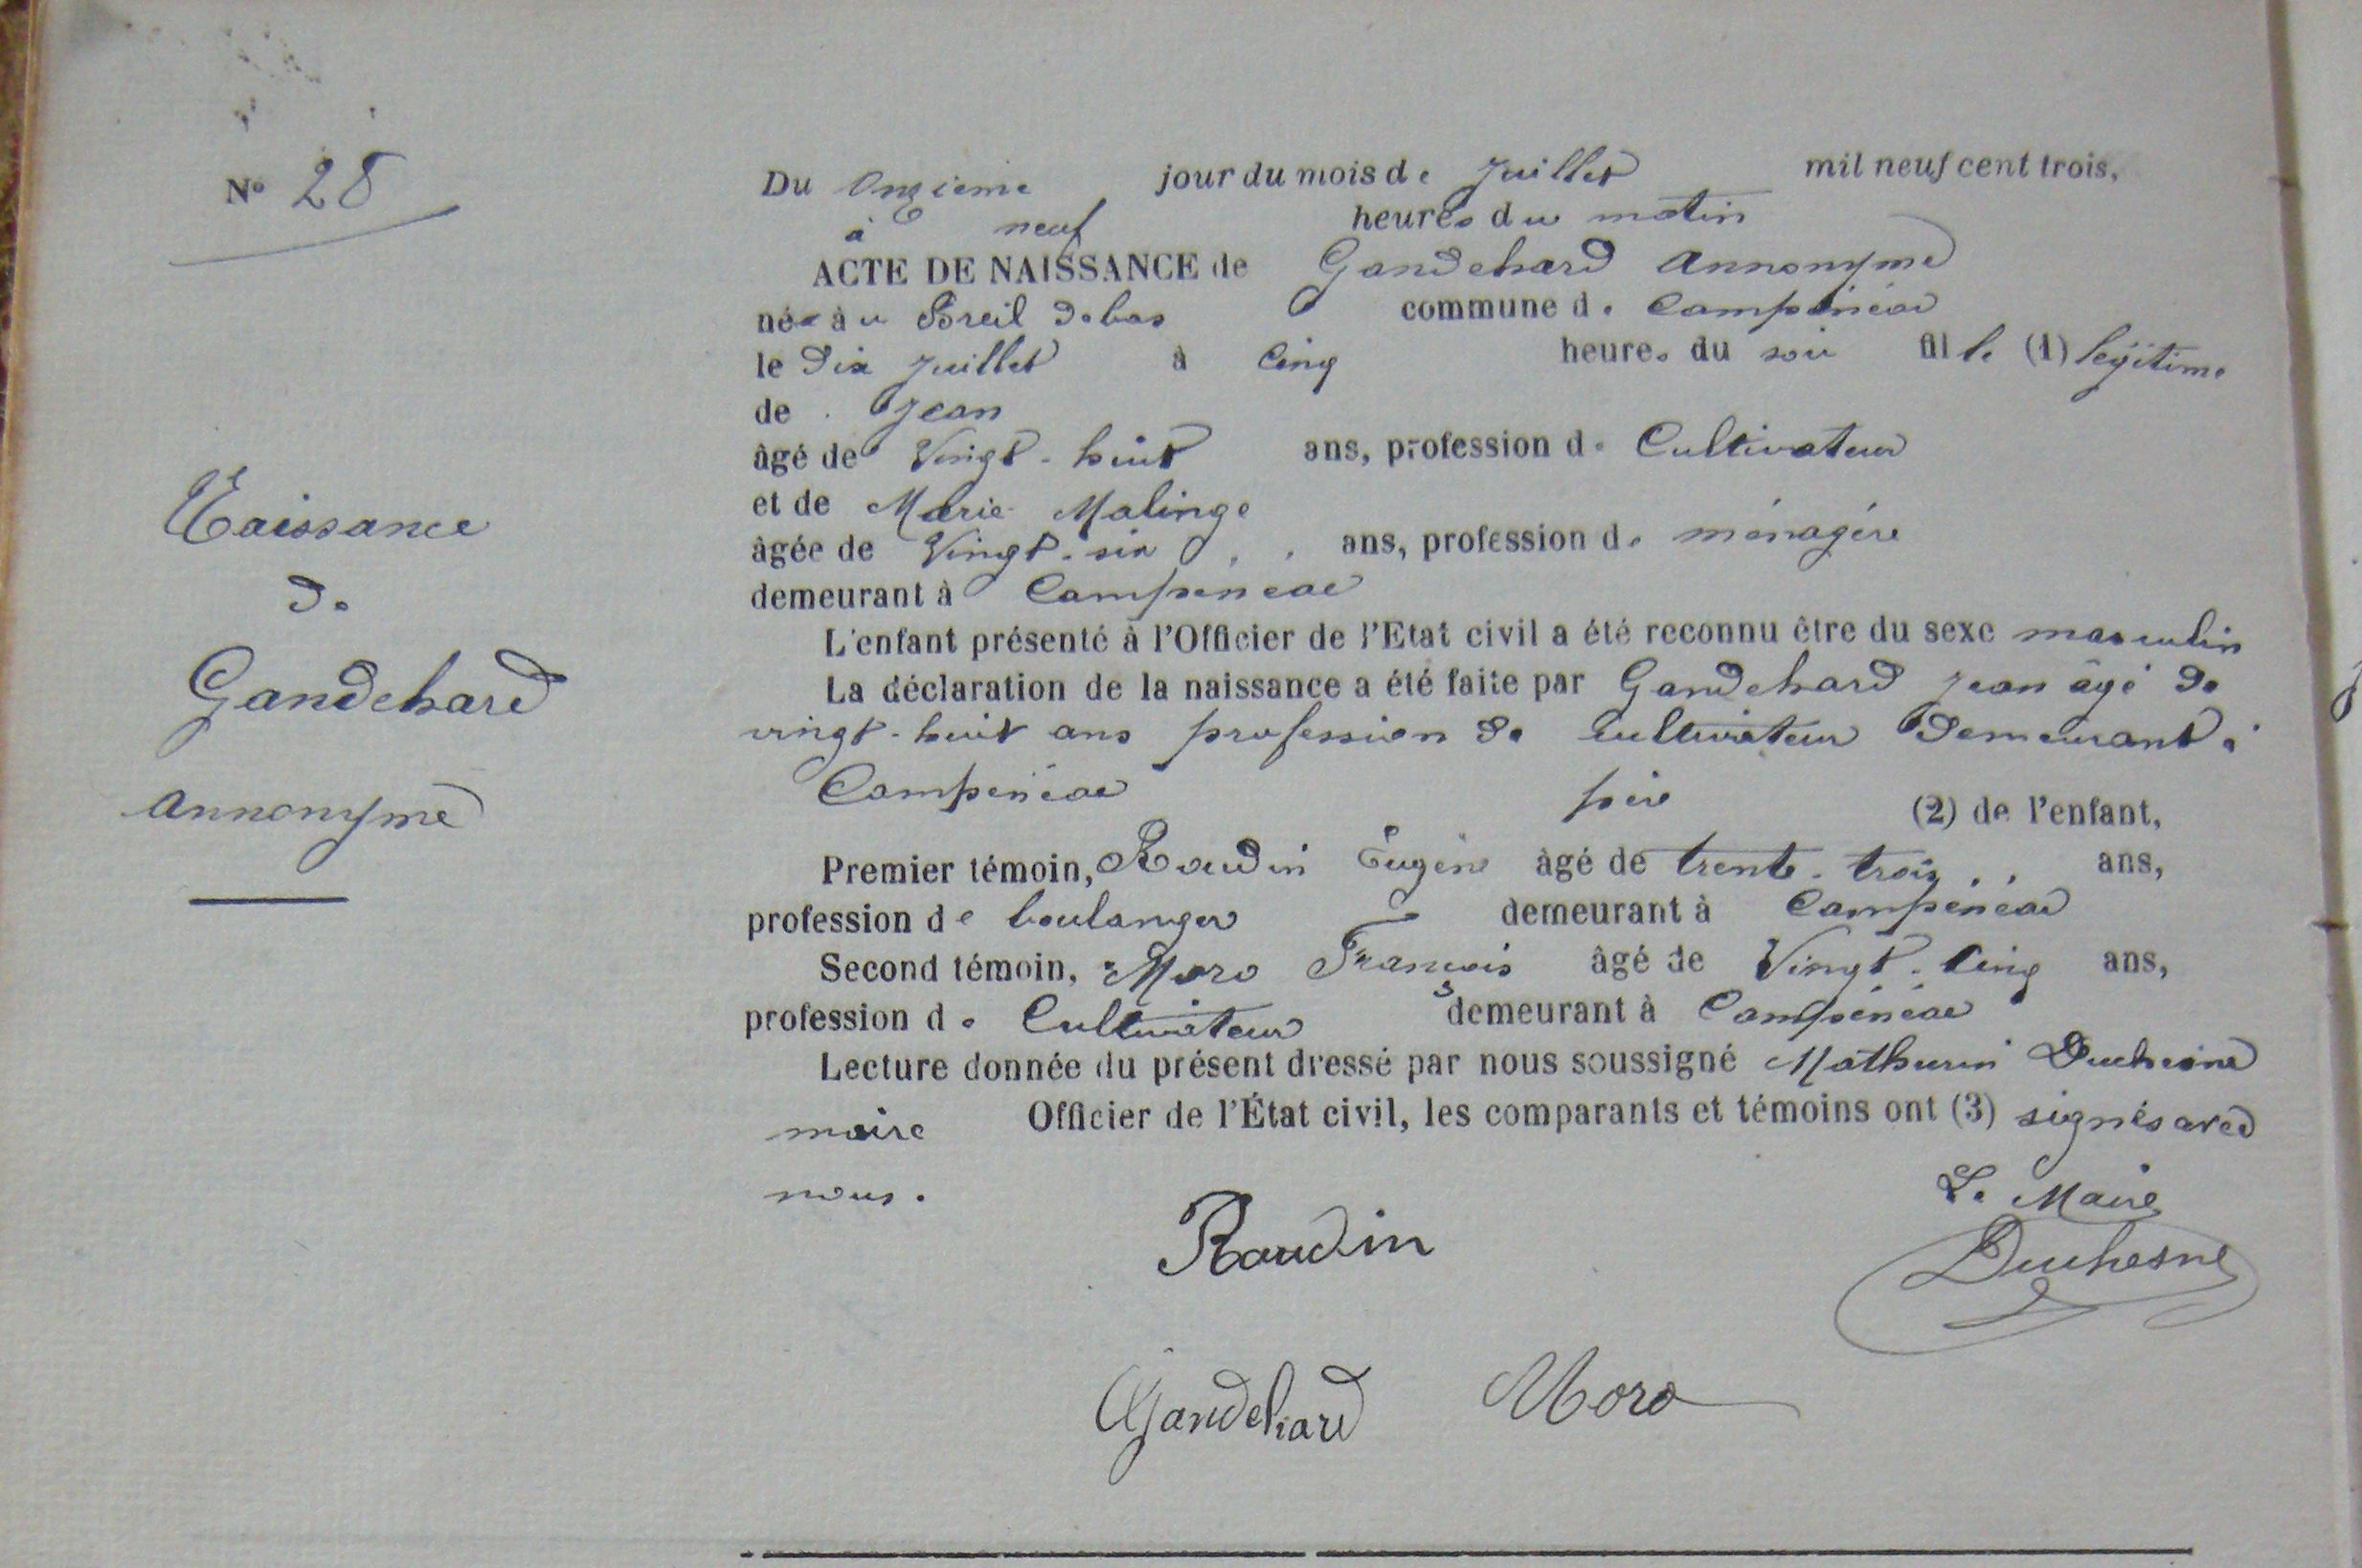 N° 28
Du onzième jour du mois de juillet mil neuf cent trois,
à neuf heures du matin
ACTE DE NAISSANCE de Gandehard Annonyme
née au Breil de bas commune de Campénéac
le dix juillet à cinq heures du soir fille (1) légitime
de Jean
âgé de Vingt-huit ans, profession de Cultivateur
et de Marie Malinge
âgée de Vingt-six ans, profession de ménagère
demeurant à Campénéac
L'enfant présenté à l'Officier de l'Etat civil a été reconnu être du sexe masculin
La déclaration de la naissance a été faite par Gandehard Jean âgé de
vingt-huit ans profession de cultivateur demeurant à
Campénéac père (2) de l'enfant,
Premier témoin, Roudin Eugène âgé de trente-trois ans,
profession de boulanger demeurant à Campénéac
Second témoin, Moro François âgé de Vingt-cinq ans,
profession de Cultivateur demeurant à Campénéac
Lecture donnée du présent dressé par nous soussigné Mathurin Duchesne
maire Officier de l'État civil, les comparants et témoins ont (3) signés avec
nous.
Le Maire
Roudin
Duchesne
Gandehard Moro
Naissance
de
Gandehard
Annonyme